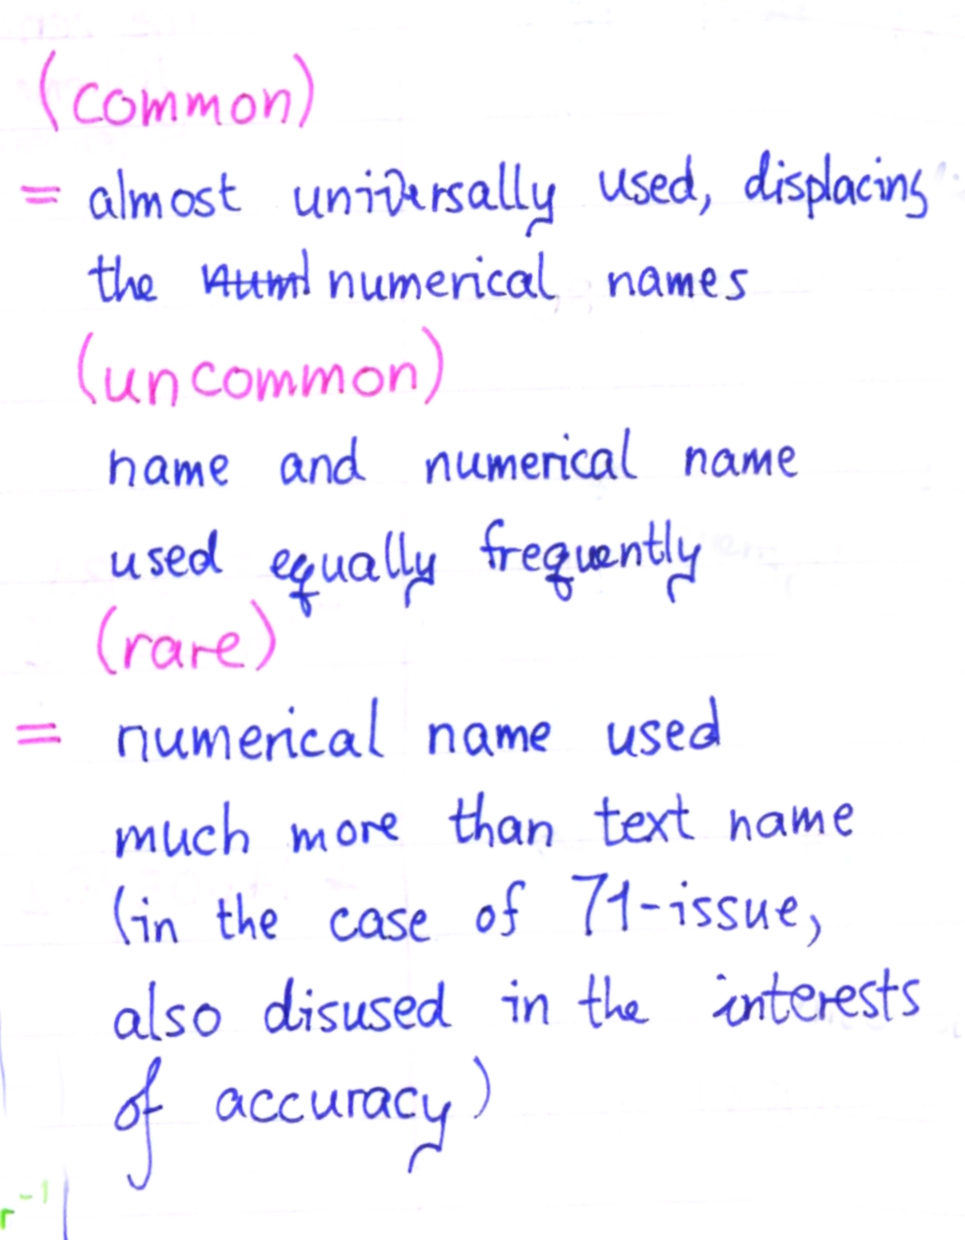 (common)
= almost universally used, displacing
the numl numerical names
(uncommon)
name and numerical name
used equally frequently
(rare)
= numerical name used
much more than text name
(in the case of 71-issue,
also disused in the interests
of accuracy)
r⁻¹